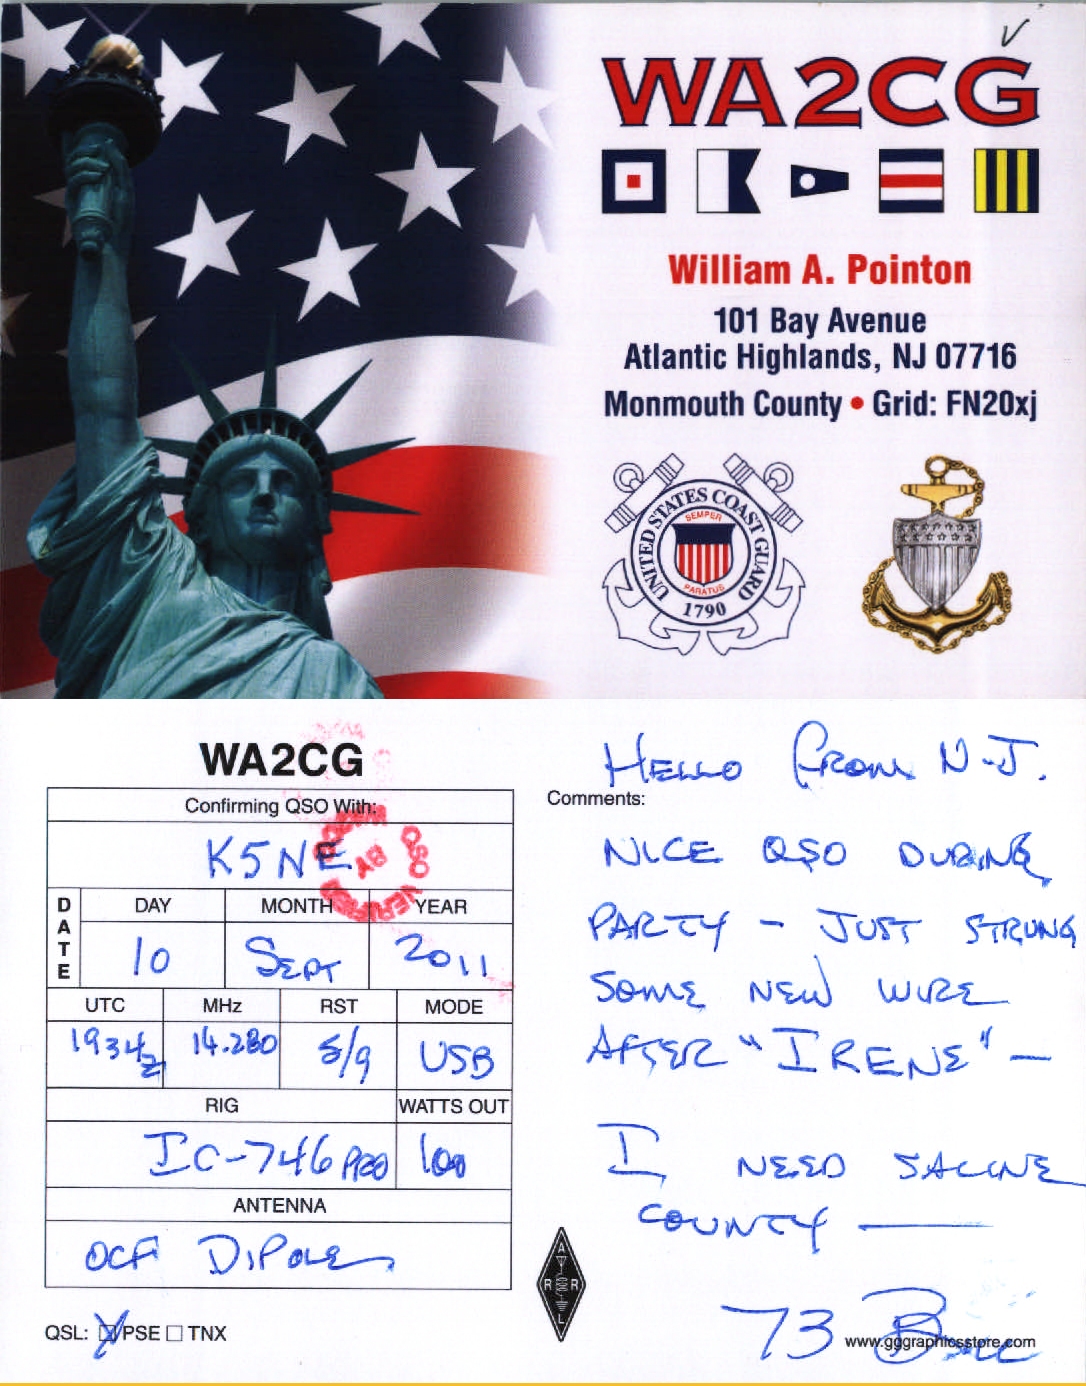 WA2CG
William A. Pointon
101 Bay Avenue
Atlantic Highlands, NJ 07716
Monmouth County • Grid: FN20xj
UNITED STATES COAST GUARD
SEMPER
PARATUS
1790
WA2CG
Confirming QSO With:
K5NE
QSO VERIFIED
AB
DATE
DAY MONTH YEAR
10 SEPT 2011
UTC MHz RST MODE
1934z 14.280 5/9 USB
RIG WATTS OUT
IC-746 PRO 100
ANTENNA
OCF DIPOLE
QSL: PSE TNX
HELLO FROM N.J.
Comments:
NICE QSO DURING
PARTY - JUST STRUNG
SOME NEW WIRE
AFTER "IRENE" -
I NEED SALINE
COUNTY
ARRL
73 Bill
www.gggraphicsstore.com